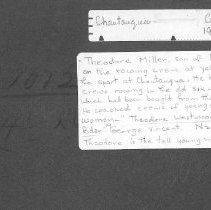 Chautauqua
C
19
"Theodore Miller, son of
on the rowing crew at Yal
he spent at Chautauqua. He h
crews rowing in the old six-
which had been bought from th
He coached crews of young
women." Theodore Westwood
Pedr George Vincent N2
Theodore is the tall young m